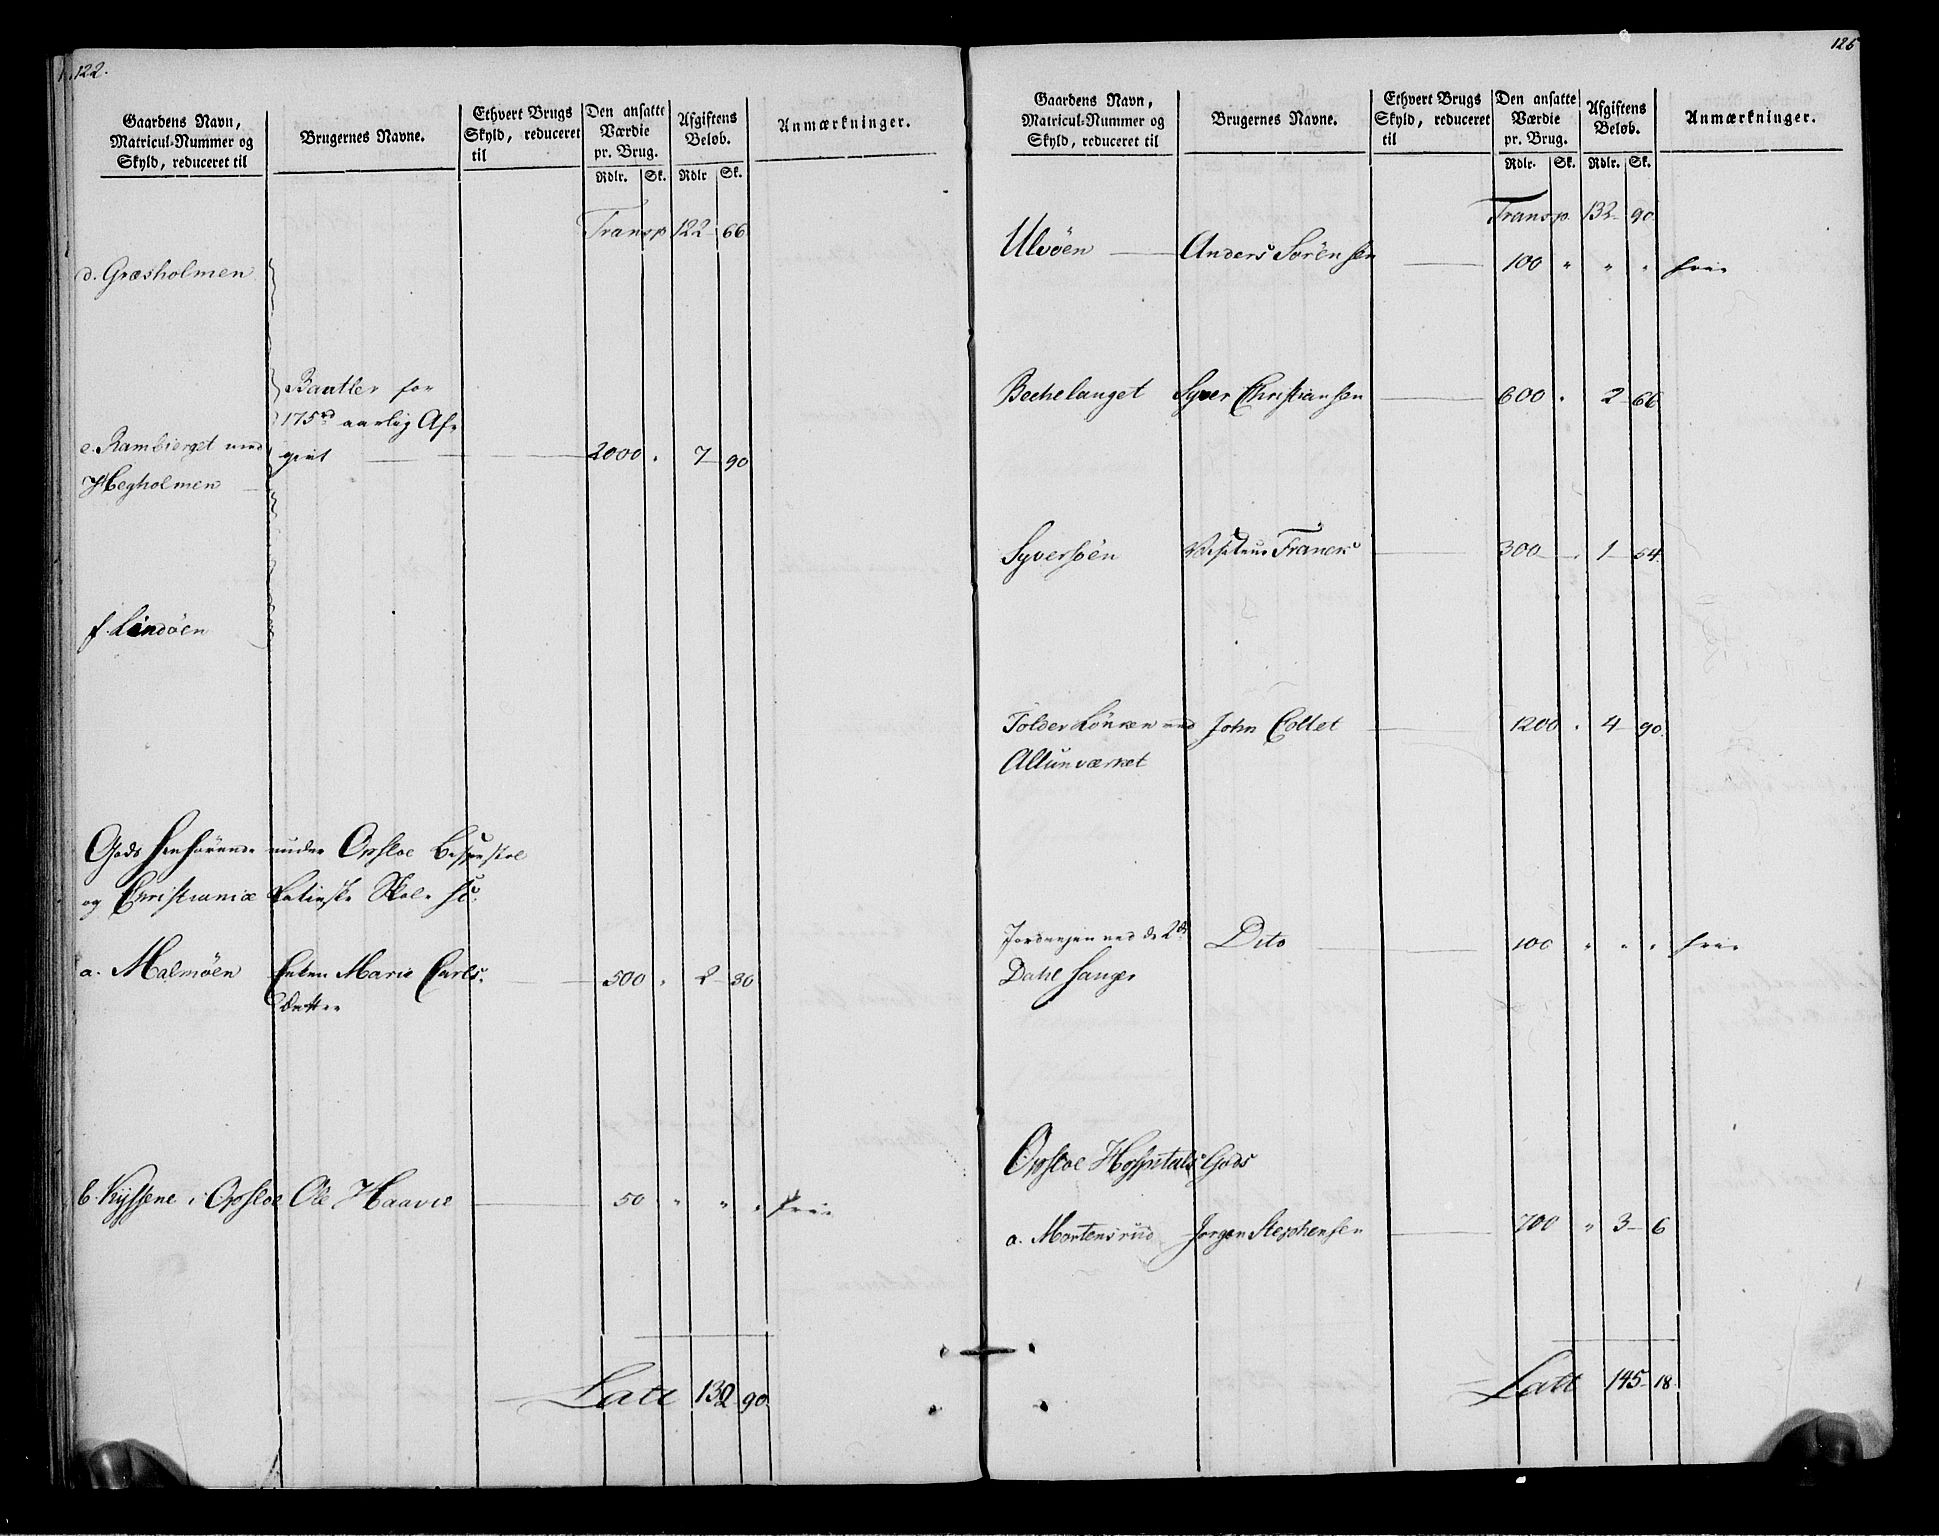 122.
Gaardens Navn,
Matricul-Nummer og
Skyld, reduceret til
Brugernes Navne.
Ethvert Brugs
Skyld, reduceret
til
Den ansatte
Værdie
pr. Brug.
Rdlr. Sk.
Afgiftens
Beløb.
Rdlr Sk.
Anmærkninger.
Transp 122 66
d. Græsholmen
Bautler for
175 rd aarlig Af-
e. Rambierget med givt 2000 " 7 90
Hegholmen
f. Lindöen
Gods henhörende under Opsloe Bispestoel
og Christianiæ Latinske Skole
a. Malmöen Enken Marie Carls- 500 " 2 30
Datter
b. Kyssene i Opsloe Ole Haavie 50 " " " frie
Latt 132 90.
125
Gaardens Navn,
Matricul-Nummer og
Skyld, reduceret til
Brugernes Navne.
Ethvert Brugs
Skyld, reduceret
til
Den ansatte
Værdie
pr. Brug.
Rdlr. Sk.
Afgiftens
Beløb.
Rdlr. Sk.
Anmærkninger.
Transp. 132 90
Ulvöen Anders Sörensen 100 " " " frie
Bechelauget Syver Christiansen 600 " 2 66
Syversöen Franck 300 " 1 54
Tolder Lönnen med John Collet 1200 " 4 90
Allunværket
ved de 2de Dito 100 " " " frie
Dahl Sauger
Opsloe Hospitals Gods
a. Mortensrud Jorgen Stephensen 700 " 3 6
Latt 145 18